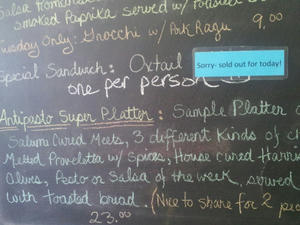 Salsa Romanesco
Smoked Paprika served w/ Toasted
Tuesday Only: Gnocchi w/ Pork Ragu 9.00
Special Sandwich: Oxtail
Sorry- sold out for today!
one per person
Antipasto Super Platter: Sample Platter of
Salumi Cured Meets, 3 different Kinds of
Melted Provoletta w/ Spices, House cured
Olives, Pesto or Salsa of the week, served
with toasted bread. (Nice to share for 2
23.00